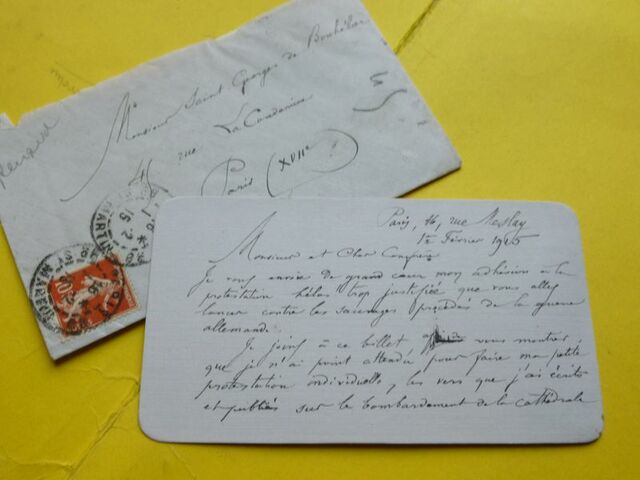 Renaud
Mr
Monsieur Saint Georges de Bouhélier
rue La Condamine
Paris (XVIIe)
10
Paris, 16, rue Meslay
Février 1915
Monsieur et Cher Confrère
Je vous envoie de grand cœur mon adhésion à la
protestation hélas trop justifiée que vous allez
lancer contre les sauvages procédés de la guerre
allemande.
Je joins à ce billet vous montrer
que je n'ai point attendu pour faire ma petite
protestation individuelle, les vers que j'ai écrits
et publiés sur le bombardement de la cathédrale